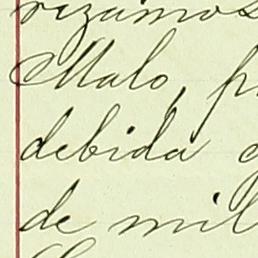 rizamos
Malo, p
debida
de mil